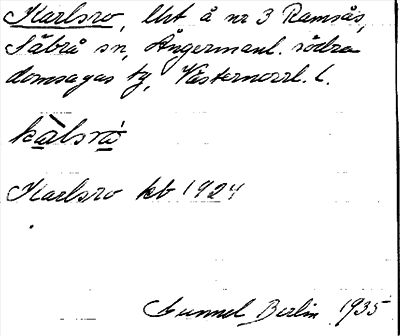 Karlsro, lht å nr 3 Ramsås,
Säbrå sn, Ångermanl. södra
domsagas tg, Västernorrl. l.
kàlsró
Karlsro kb 1924
Gunnel Berlin 1935